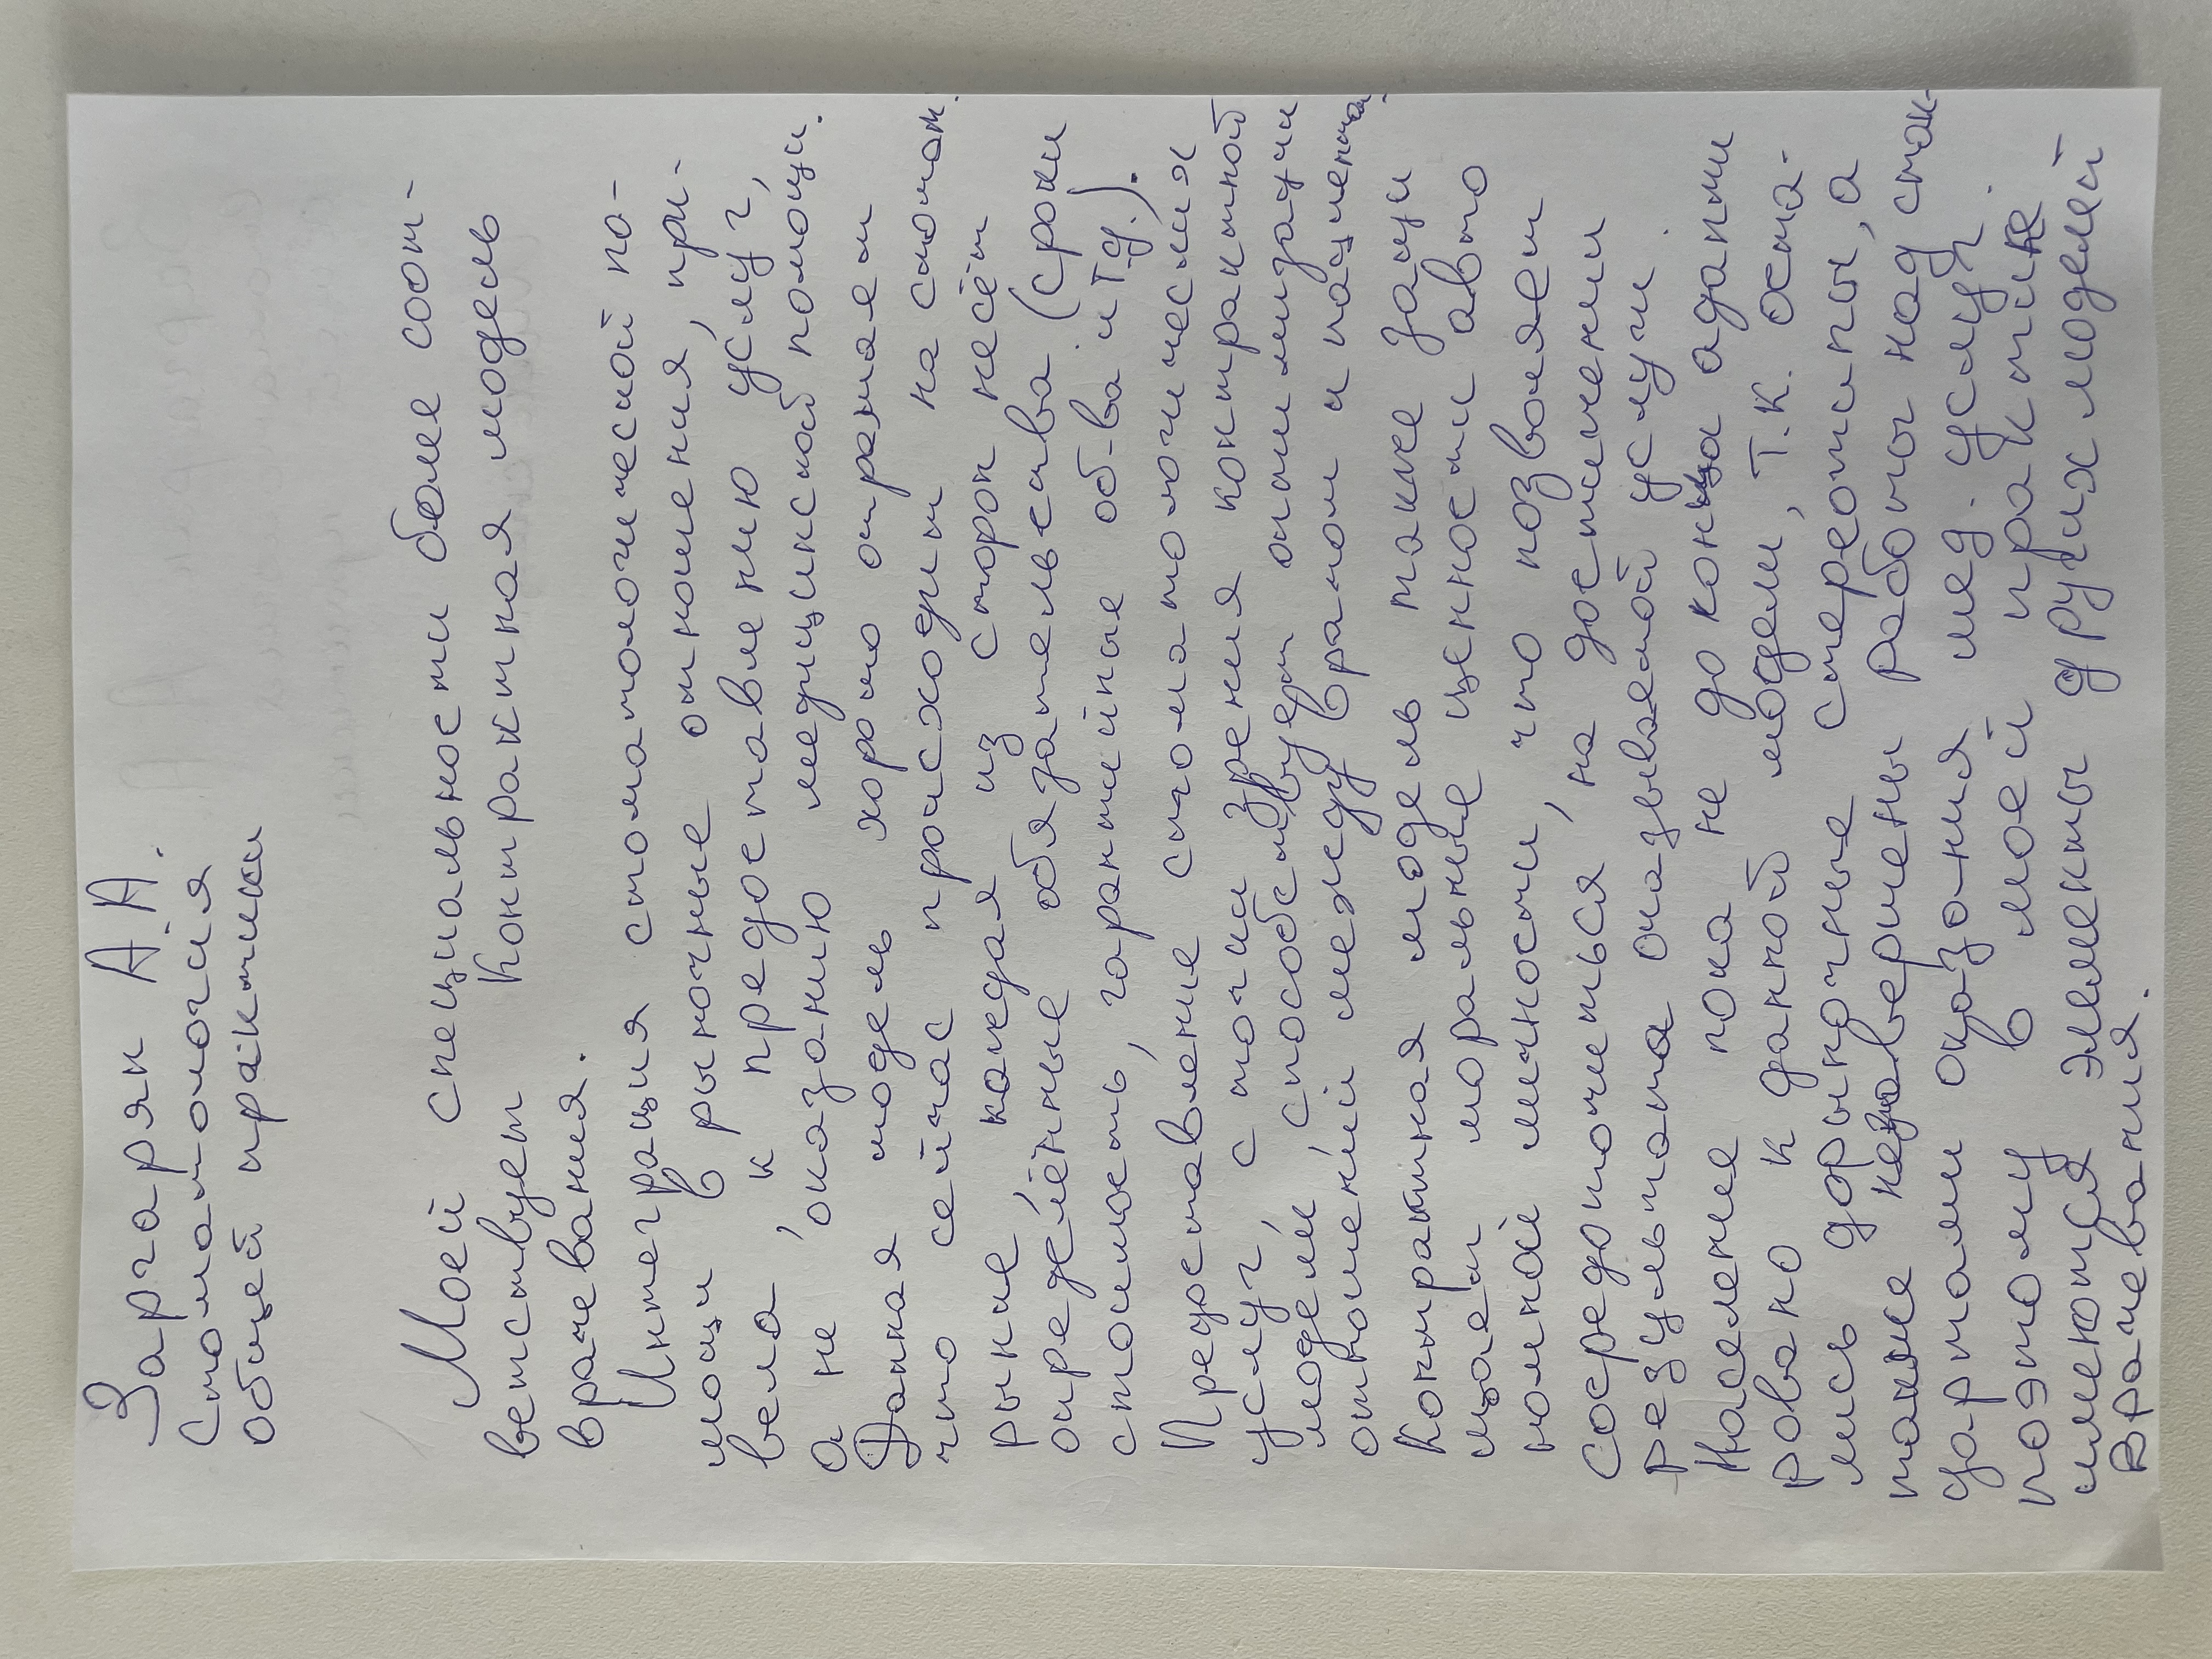 Заргарян А.А.
Стоматология
общей практики
Моей специальности более соот-
ветствует контрактная модель
врачевания.
Интеграция стоматологической по-
мощи в рыночные отношения, при-
вела к предоставлению услуг,
а не оказанию медицинской помощи.
Данная модель хорошо отражает
что сейчас происходит на стомат.
рынке, каждая из сторон несёт
определённые обязательства (сроки
стоимость, гарантийные об-ва и т.д.).
Предоставление стоматологических
услуг, с точки зрения контрактной
модели способствует оптимизации
отношений между врачом и пациентом.
Контрактная модель также защи-
щает моральные ценности авто
номной личности, что позволяет
сосредоточиться, на достижении
результата оказываемой услуги.
Население пока не до конца адапти
ровано к данной модели, т.к. оста-
лись дорыночные стереотипы, а
также несовершенны работы над стан-
дартами оказания мед. услуг.
поэтому в моей практике
имеются элементы других моделей
врачевания.